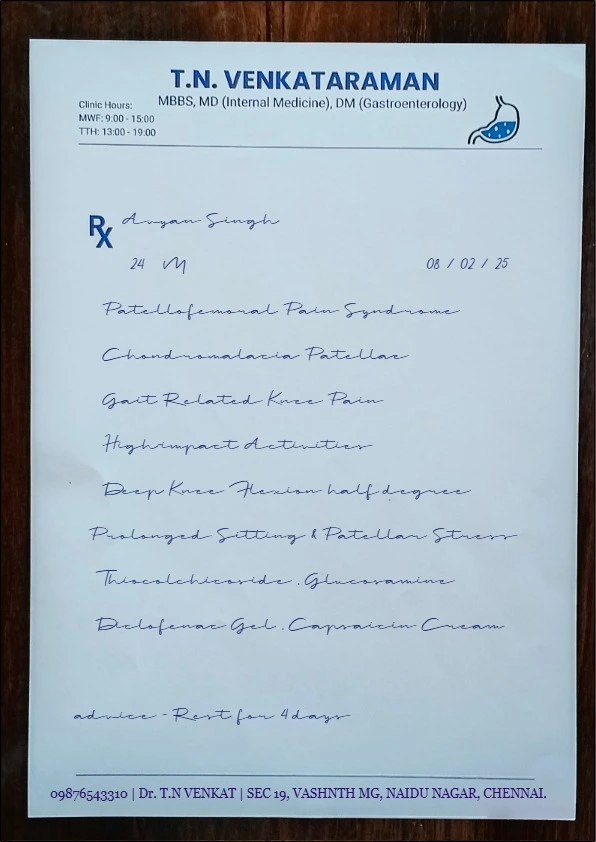 T.N. VENKATARAMAN
MBBS, MD (Internal Medicine), DM (Gastroenterology)
Clinic Hours:
MWF: 9:00 - 15:00
TTH: 13:00 - 19:00
Rx Avyan Singh
24 M 08 / 02 / 25
Patellofemoral Pain Syndrome
Chondromalacia Patellae
Gait Related Knee Pain
Highimpact Activities
Deep Knee Flexion half degree
Prolonged Sitting & Patellar Stress
Thiocolchicoside , Glucosamine
Diclofenac Gel , Capsaicin Cream
advice - Rest for 4days
09876543310 | Dr. T.N VENKAT | SEC 19, VASHNTH MG, NAIDU NAGAR, CHENNAI.